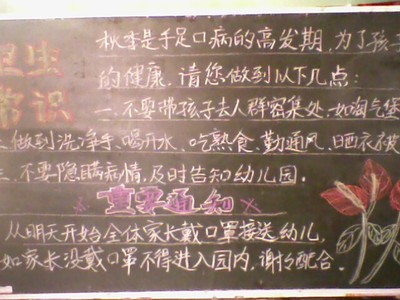 卫生常识
秋季是手足口病的高发期,为了孩子
的健康,请您做到以下几点:
一.不要带孩子去人群密集处,如淘气堡
二.做到洗净手、喝开水、吃熟食、勤通风、晒衣被
三.不要隐瞒病情,及时告知幼儿园.
重要通知
从明天开始全体家长戴口罩接送幼儿,
如家长没戴口罩不得进入园内,谢谢配合.